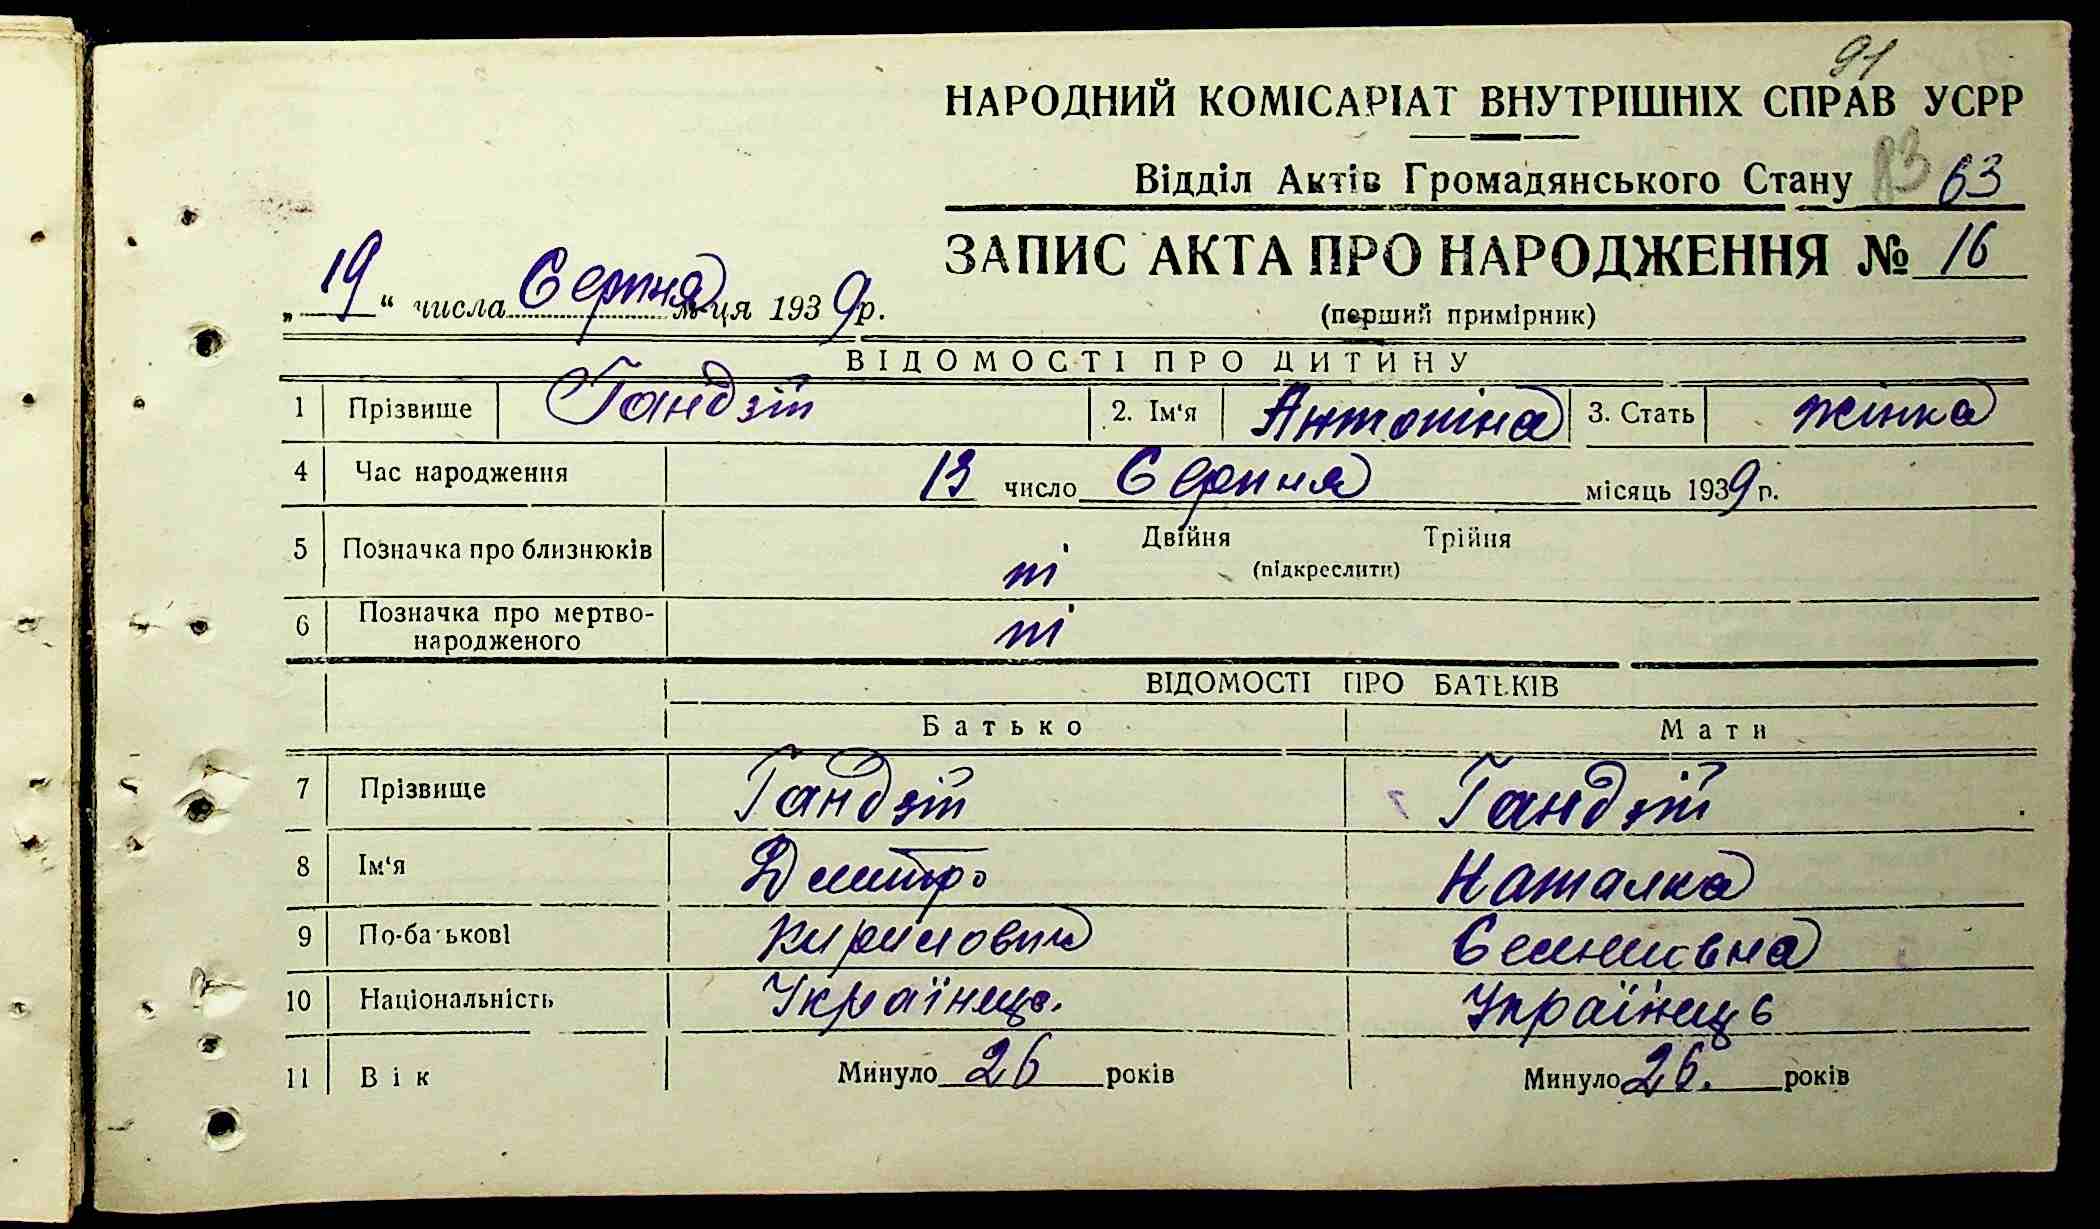 91
НАРОДНИЙ КОМІСАРІАТ ВНУТРІШНІХ СПРАВ УСРР
Відділ Актів Громадянського Стану 83 63
ЗАПИС АКТА ПРО НАРОДЖЕННЯ № 16
„ 19 “ числа Серпня м-ця 1939 р.
(перший примірник)
ВІДОМОСТІ ПРО ДИТИНУ
1 Прізвище Гандзій 2. Ім'я Антоніна 3. Стать жінка
4 Час народження 13 число Серпня місяць 1939 р.
5 Позначка про близнюків ні Двійня Трійня
(підкреслити)
6 Позначка про мертво-
народженого ні
ВІДОМОСТІ ПРО БАТЬКІВ
Батько Мати
7 Прізвище Гандзій Гандзій
8 Ім'я Дмитро Наталка
9 По-батькові Кирилович
10 Національність Українець. Українець
11 Вік Минуло 26 років Минуло 26. років